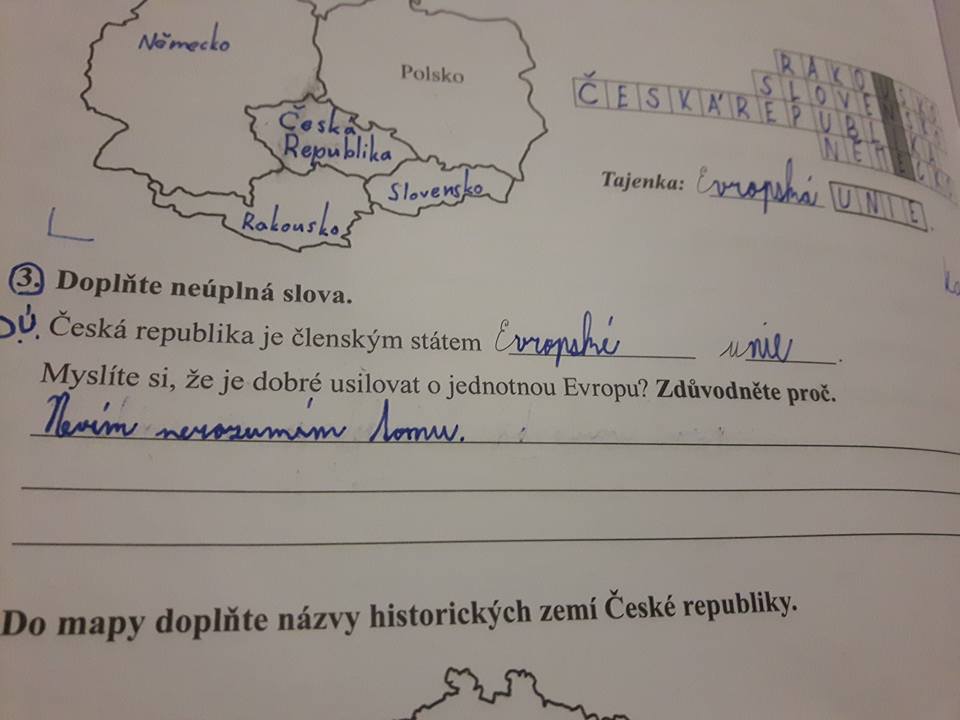 Německo
Polsko
Česká
Republika
Slovensko
Rakousko
RAKOUSKO
SLOVENSKO
ČESKÁREPUBLIKA
NĚMECKO
Tajenka: Evropská UNIE.
3. Doplňte neúplná slova.
DÚ. Česká republika je členským státem Evropské unie.
Myslíte si, že je dobré usilovat o jednotnou Evropu? Zdůvodněte proč.
Nevím nerozumím tomu.
Do mapy doplňte názvy historických zemí České republiky.